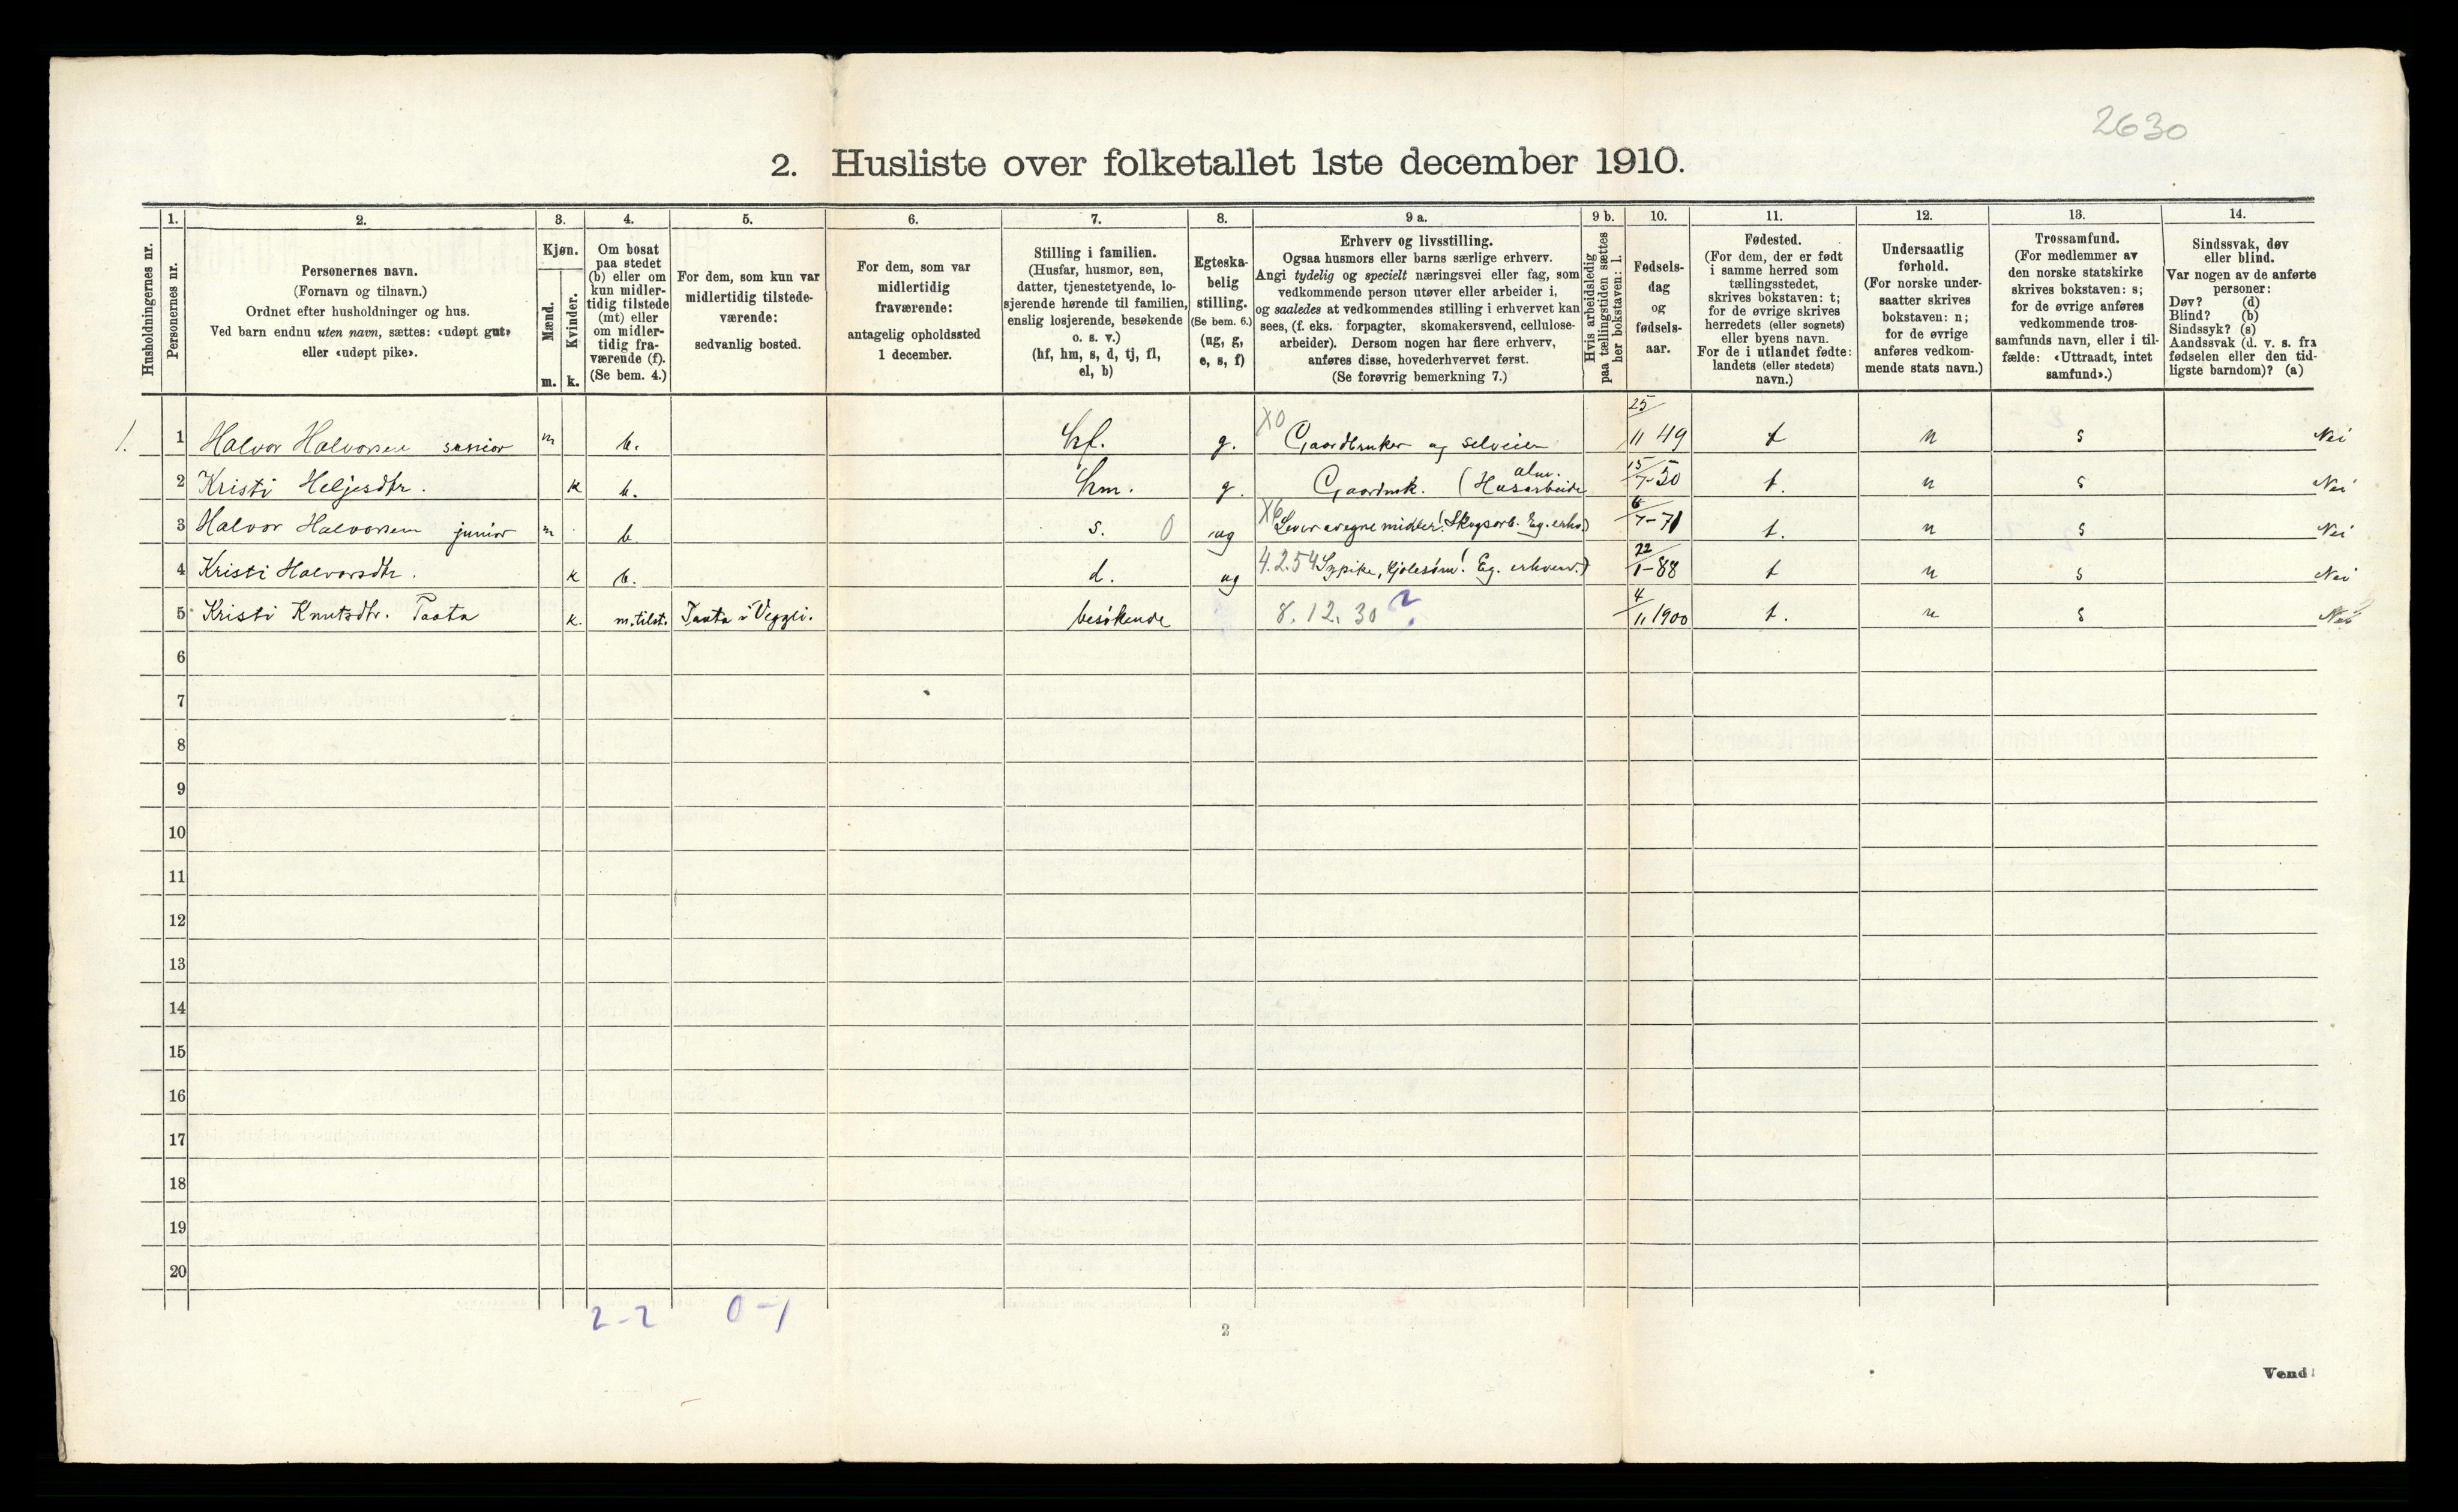 2630
2. Husliste over folketallet 1ste december 1910.
Husholdningernes nr.
1.
Personernes nr.
2.
Personernes navn.
(Fornavn og tilnavn.)
Ordnet efter husholdninger og hus.
Ved barn endnu uten navn, sættes: «udøpt gut»
eller «udøpt pike».
3.
Kjøn.
Mænd.
Kvinder.
m. k.
4.
Om bosat
paa stedet
(b) eller om
kun midler-
tidig tilstede
(mt) eller
om midler-
tidig fra-
værende (f).
(Se bem. 4.)
5.
For dem, som kun var
midlertidig tilstede-
værende:
sedvanlig bosted.
6.
For dem, som var
midlertidig
fraværende:
antagelig opholdssted
1 december.
7.
Stilling i familien.
(Husfar, husmor, søn,
datter, tjenestetyende, lo-
sjerende hørende til familien,
enslig losjerende, besøkende
o. s. v.)
(hf, hm, s, d, tj, fl,
el, b)
8.
Egteska-
belig
stilling.
(Se bem. 6.)
(ug, g,
e, s, f)
9 a.
Erhverv og livsstilling.
Ogsaa husmors eller barns særlige erhverv.
Angi tydelig og specielt næringsvei eller fag, som
vedkommende person utøver eller arbeider i,
og saaledes at vedkommendes stilling i erhvervet kan
sees, (f. eks. forpagter, skomakersvend, cellulose-
arbeider). Dersom nogen har flere erhverv,
anføres disse, hovederhvervet først.
(Se forøvrig bemerkning 7.)
9 b.
Hvis arbeidsledig
paa tællingstiden sættes
her bokstaven: l.
10.
Fødsels-
dag
og
fødsels-
aar.
11.
Fødested.
(For dem, der er født
i samme herred som
tællingsstedet,
skrives bokstaven: t;
for de øvrige skrives
herredets (eller sognets)
eller byens navn.
For de i utlandet fødte:
landets (eller stedets)
navn.)
12.
Undersaatlig
forhold.
(For norske under-
saatter skrives
bokstaven: n;
for de øvrige
anføres vedkom-
mende stats navn.)
13.
Trossamfund.
(For medlemmer av
den norske statskirke
skrives bokstaven: s;
for de øvrige anføres
vedkommende tros-
samfunds navn, eller i til-
fælde: «Uttraadt, intet
samfund».)
14.
Sindssvak, døv
eller blind.
Var nogen av de anførte
personer:
Døv? (d)
Blind? (b)
Sindssyk? (s)
Aandssvak (d. v. s. fra
fødselen eller den tid-
ligste barndom)? (a)
1. 1 Halvor Halvorsen senior m b. hf. g. X0 Gaardbruker og selveier 25/11 49 t n s Nei
2 Kristi Heljesdtr. k b. hm. g. Gaardmk. (alm. Husarbeide 15/7-50 t. n s Nei
3 Halvor Halvorsen junior m b s. 0 ug Lever av egne midler! Skogsarb. Eg. erhv.) 6/7-71 t. n s Nei
4 Kristi Halvorsdtr. k b. d. ug 4.2.54 Sypike, kjolesöm! Eg. erhverv.) 22/1-88 t n s Nei
5 Kristi Knutsdtr. Taata k. m. tilst. Taata i Veggli. besökende 8.12.30 ? 4/11 1900 t. n s Nei
6
7
8
9
10
11
12
13
14
15
16
17
18
19
20
2-2 0-1
2
Vend!